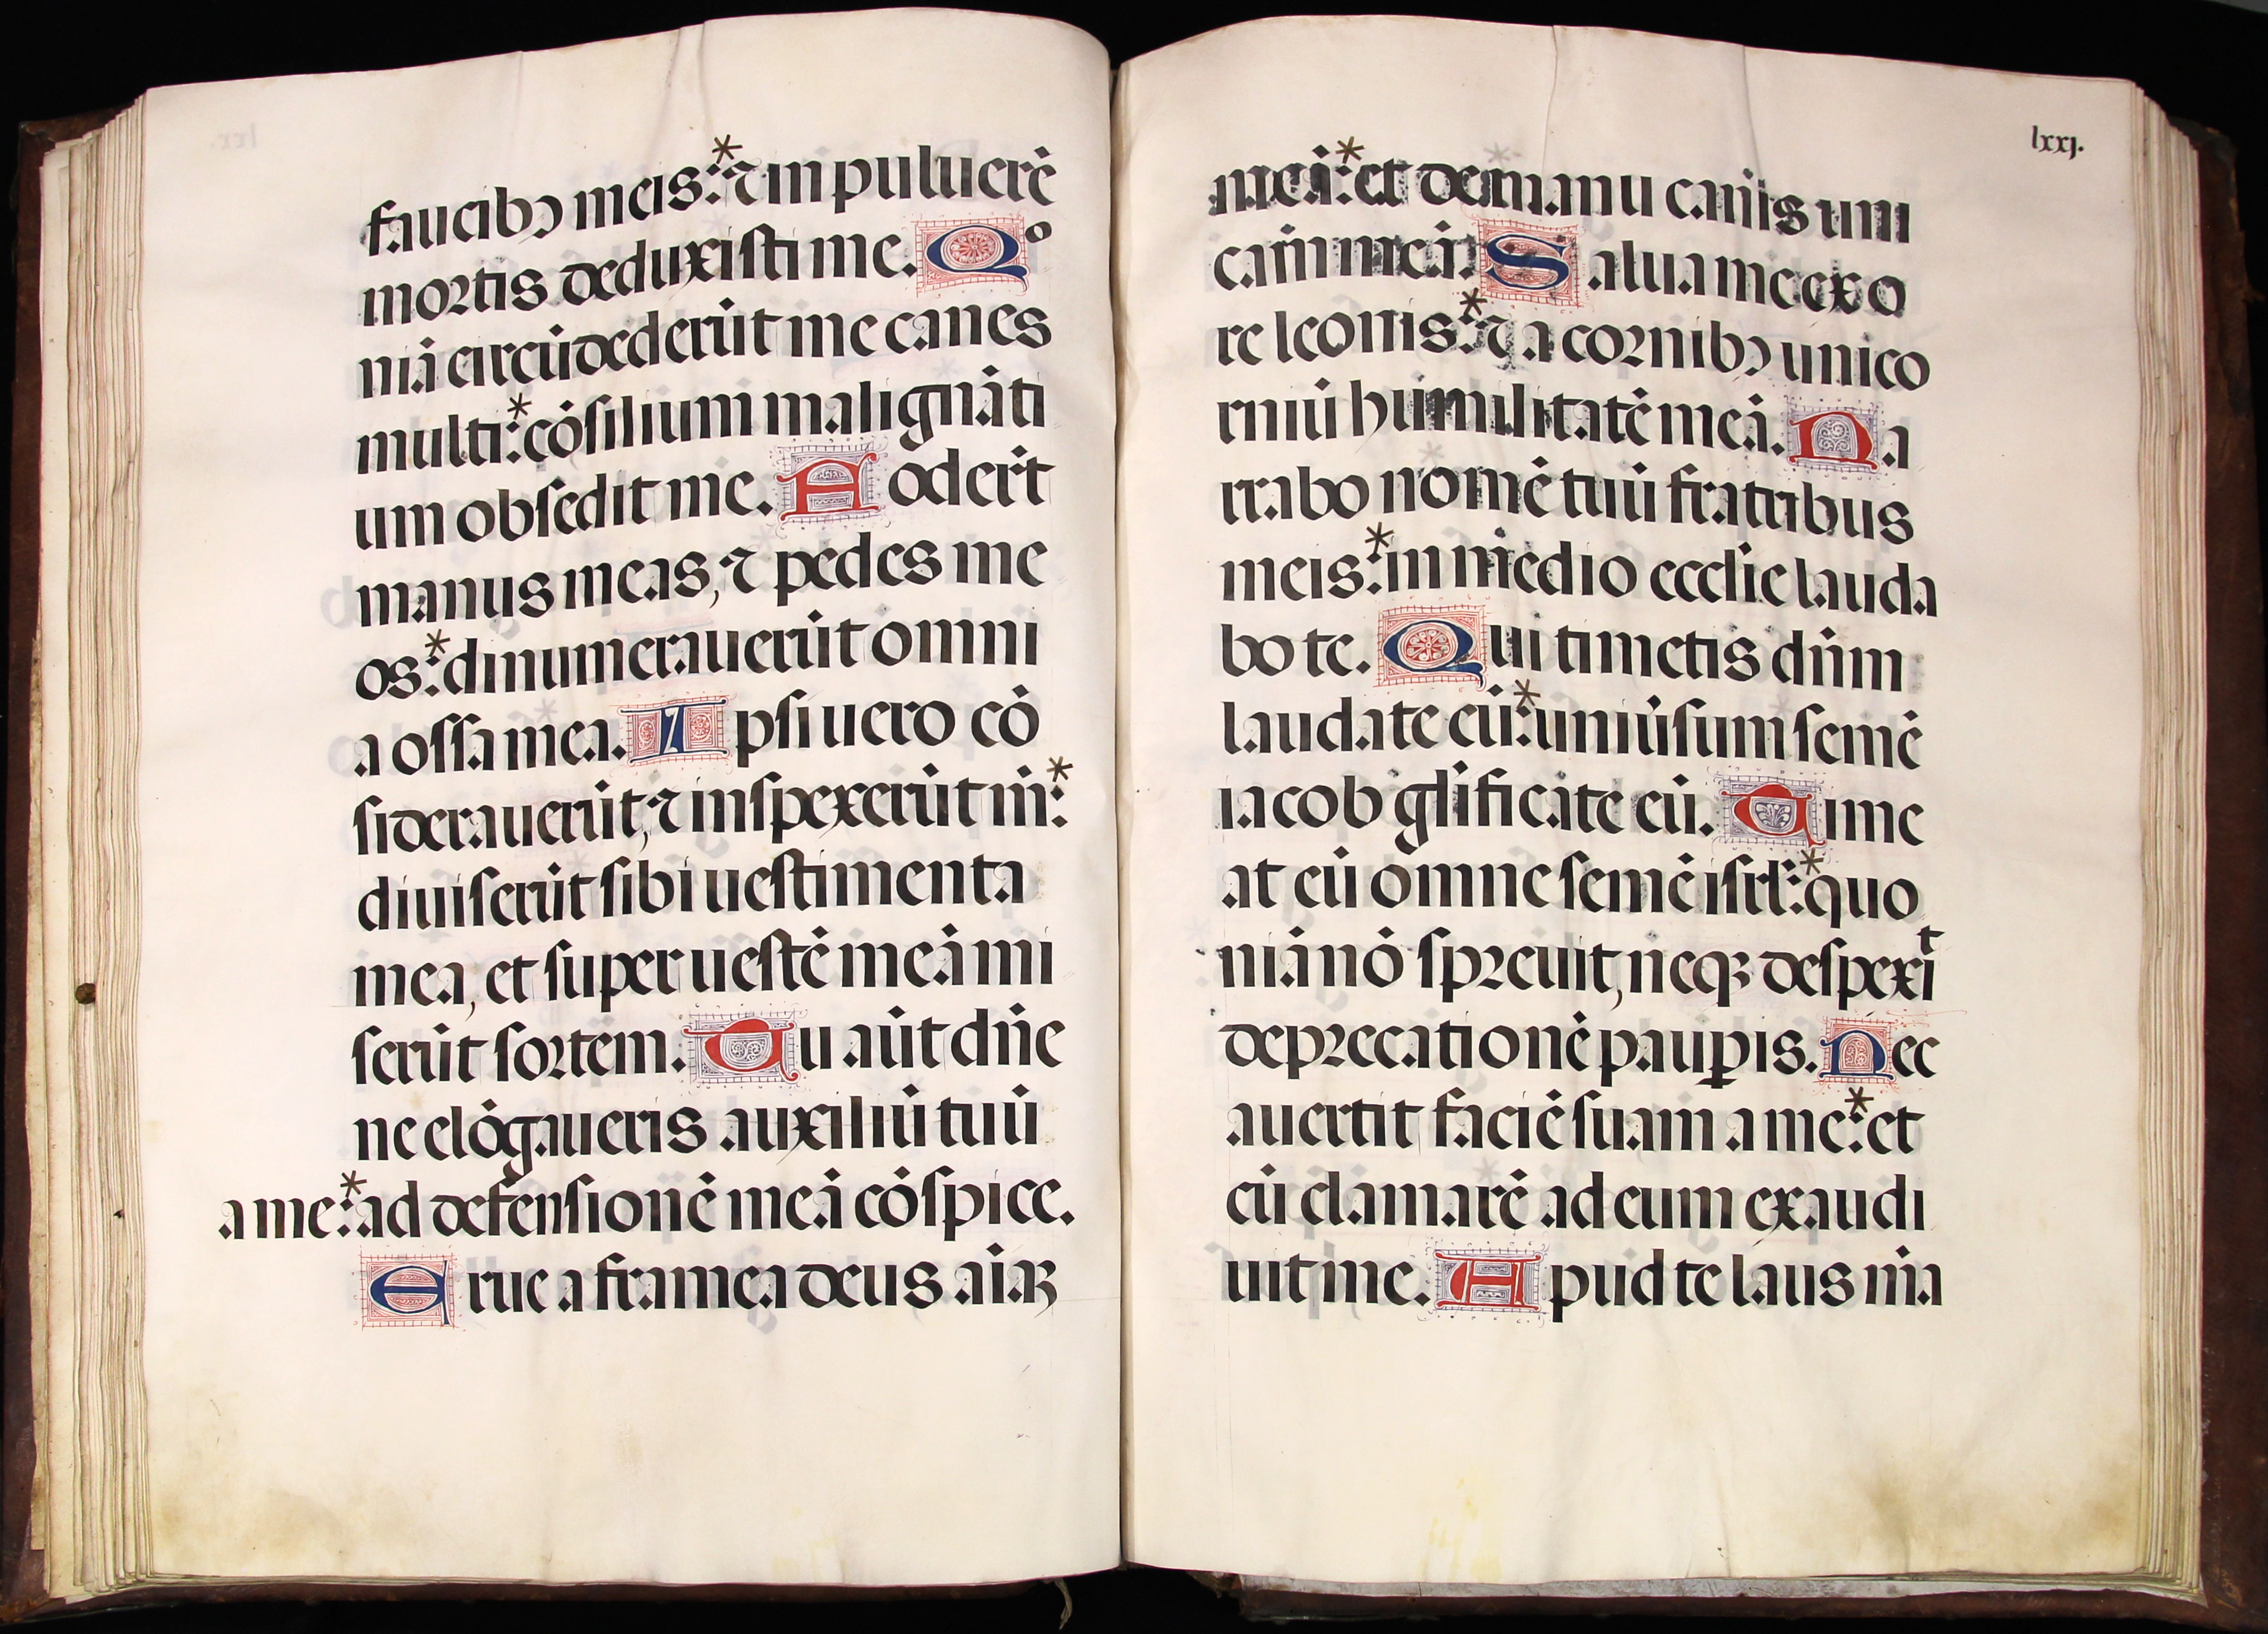 faucibꝫ meis:* ⁊ in puluerē
mortis deduxisti me. Qo
niā circūdederūt me canes
multi:* cōsilium malignāti
um obsedit me. Foderūt
manus meas, ⁊ pedes me
os:* dinumerauerūt omni
a ossa mea. Ipsi uero cō
siderauerūt, ⁊ inspexerūt m̄:*
diuiserūt sibi uestimenta
mea, et super uestē meā mi
serūt sortem. Tu aūt dn̄e
ne elōgaueris auxiliū tuū
a me:* ad defensionē meā cōspice.
Erue a framea deus aīaꝫ
lxxj.
meā:* et de manu canis uni
cam meā. Salua me ex o
re leonis:* ⁊ a cornibꝫ unico
rniū humilitatē meā. Na
rrabo nomē tuū fratribus
meis:* in medio ecclīe lauda
bo te. Qui timetis dn̄m
laudate eū:* uniūsum semē
iacob gl̄ificate eū. Time
at eū omne semē isrl̄:* quo
niā nō spreuit, neqꝫ despexit
deprecationē paup̲is. Nec
auertit faciē suam a me:* et
cū clamarē ad eum exaudi
uit me. Apud te laus m̄a